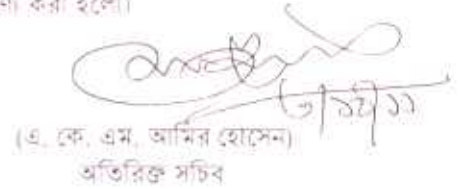 করা হলো।
(এ. কে. এম. আমির হোসেন)
অতিরিক্ত সচিব